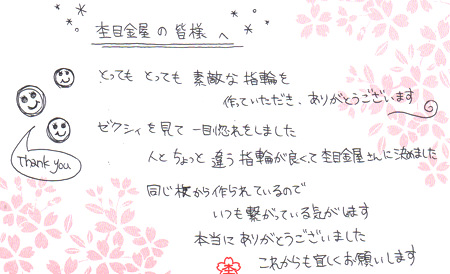 杢目金屋の皆様へ
とってもとっても素敵な指輪を
作っていただき、ありがとうございます
ゼクシィを見て一目惚れをしました
人とちょっと違う指輪が良くて杢目金屋さんに決めました
Thank you
同じ板から作られているので
いつも繋がっている気がします
本当にありがとうございました
これからも宜しくお願いします